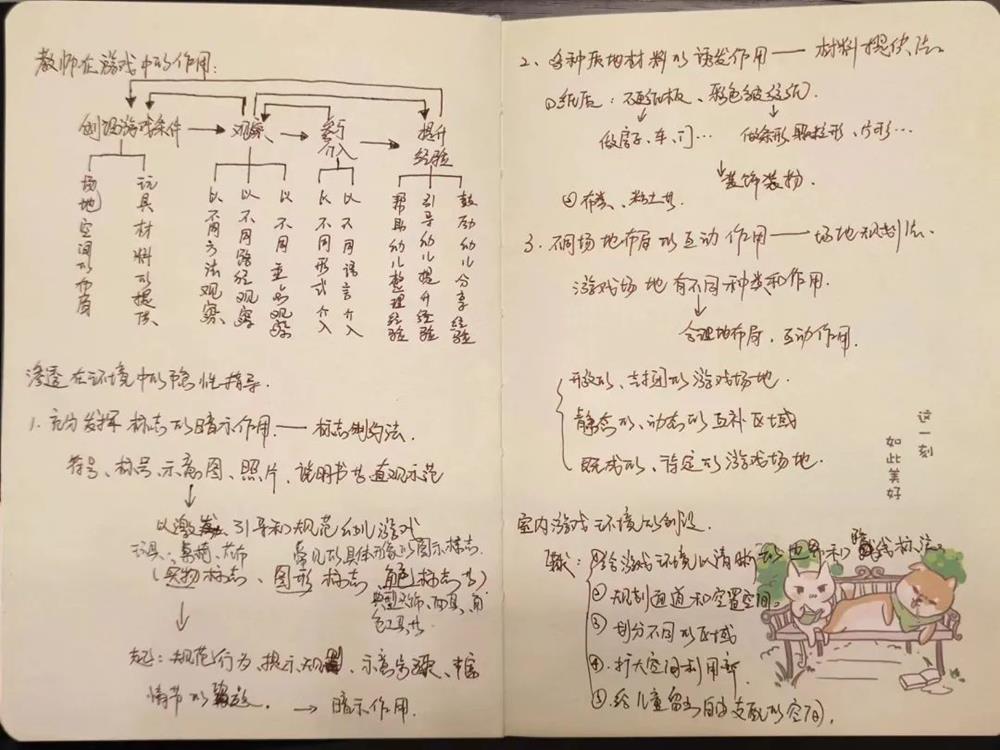 教师在游戏中的作用:
创设游戏条件 → 观察 → 参与介入 → 提升经验
场地空间的布局
玩具材料的提供
以不同方法观察
以不同路径观察
以不同重点观察
以不同形式介入
以不同语言介入
帮助幼儿整理经验
引导幼儿提升经验
鼓励幼儿分享经验
渗透在环境中的隐性指导.
1. 充分发挥标志的暗示作用 —— 标志制约法.
符号、标号、示意图、照片、说明书等直观示范
↓
以激发、引导和规范幼儿游戏
玩具: 桌椅、
常见的具体形象的图示标志.
(实物标志、图形标志、角色标志等)
典型服饰、面具、角色工具等
↓
起: 规范行为、提示规则、示意步骤、丰富
情节的 → 暗示作用.
2、各种质地材料的诱发作用 —— 材料提供法。
①纸质: 硬纸板、彩色皱纹纸.
做房子、车、门… 做条形、颗粒形、片形…
↓装饰装扮.
② 布类、粘土类.
3. 不同场地布局的互动作用 —— 场地规划法.
游戏场地有不同种类和作用.
↓
合理地布局, 互动作用.
开放的、封闭的游戏场地.
静态的、动态的互补区域
既成的、待定的游戏场地.
这一刻
如此美好
室内游戏环境的创设.
①给游戏环境以清晰的边界和标注.
② 规划通道和空置空间.
③ 划分不同的区域
④ 扩大空间利用率
⑤ 给儿童留出自由支配的空间.